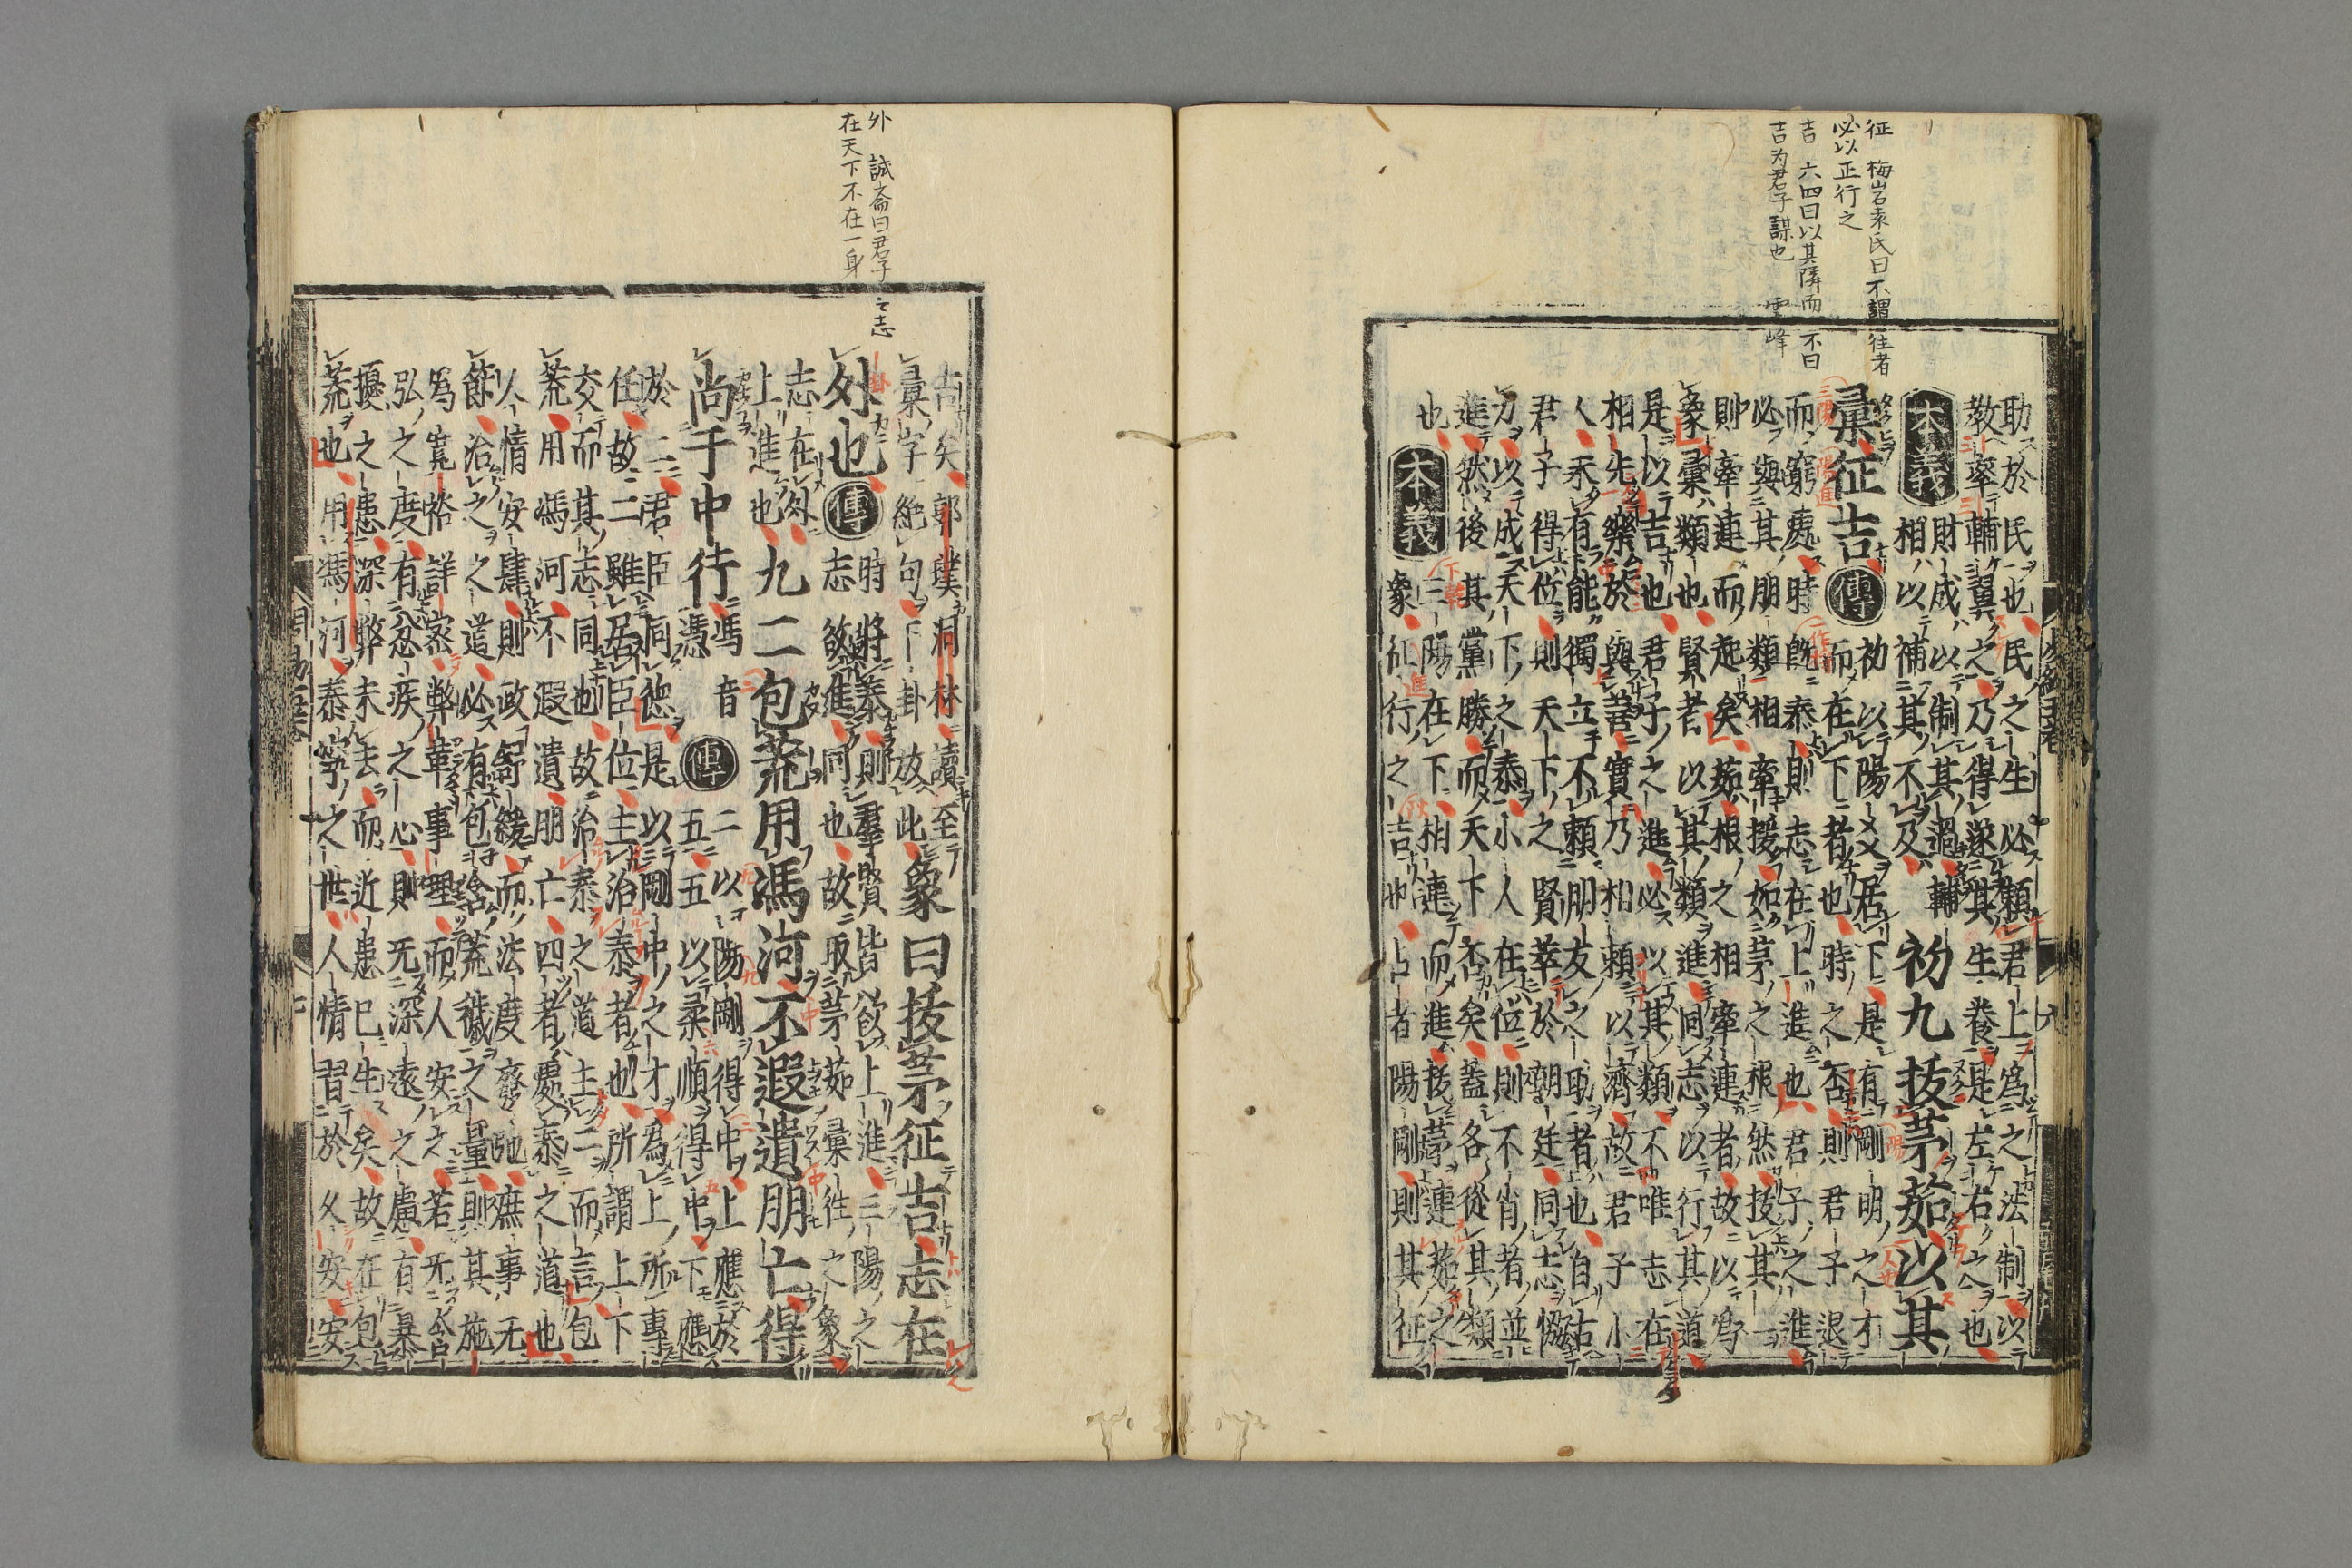 征 梅岩袁氏曰不謂往者
必以正行之
吉 六四曰以其隣而不曰
吉为君子謀也 雲峰
助於民也民之生必賴君上爲之法制以
教率輔翼之乃得遂其生養是左右之也
本義 財成以制其過輔
相以補其不及
初九拔茅茹以其
彙征吉 傳 初以陽爻居下是有剛明之才
而在下者也時之否則君子退
而窮處時既泰則志在上進也君子之進
必與其朋類相牽援如茅之根然拔其一
則牽連而起矣茹根之相牽連者故以爲
象彙類也賢者以其類進同志以行其道
是以吉也君子之進必以其類不唯志在
相先樂於與善實乃相賴以濟故君子小
人未有能獨立不賴朋友之助者也自古
君子得位則天下之賢萃於朝廷同志恊
力以成天下之泰小人在位則不肖者並
進然後其黨勝而天下否矣蓋各從其類
也 本義 三陽在下相連而進拔茅連茹之
象征行之吉也占者陽剛則其征
外 誠斎曰君子之志
在天下不在一身
吉矣郭璞洞林讀至
彙字絶句下卦放此
象曰拔茅征吉志在
外也 傳 時將泰則羣賢皆欲上進三陽之
志欲進同也故取茅茹彙往之象
志在外
上進也
九二包荒用馮河不遐遺朋亡得
尚于中行 馮音
憑
傳 二以陽剛得中上應於
五五以柔順得中下應
於二君臣同德是以剛中之才爲上所專
任故二雖居臣位主治泰者也所謂上下
交而其志同也故治泰之道主二而言包
荒用馮河不遐遺朋亡四者處泰之道也
人情安肆則政舒緩而法度廢弛庶事无
節治之之道必有包含荒穢之量則其施
爲寬裕詳密弊革事理而人安之若无含
弘之度有忿疾之心則无深遠之慮有暴
擾之患深弊未去而近患已生矣故在包
荒也用馮河泰寧之世人情習於久安安